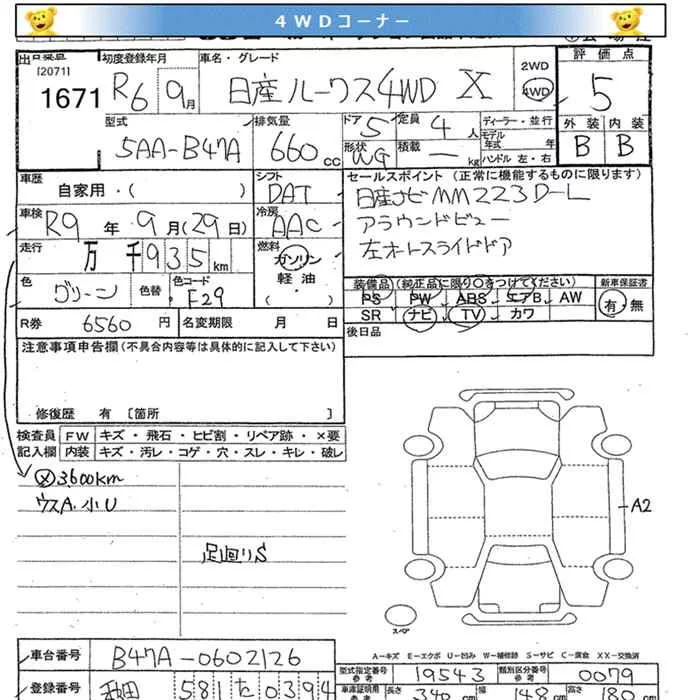 4WDコーナー
出品票 初度登録年月 車名・グレード 2WD 評価点
[2071]
1671 R6 9月 日産ルークス4WD X 4WD 5
型式 排気量 ドア 5 定員 4人 ディーラー・並行 外装 内装
5AA-B47A 660cc 形状 WG 積載 ― kg モデル年式 年 ハンドル 左・右 B B
車歴 シフト セールスポイント (正常に機能するものに限ります)
自家用・( ) DAT 日産ナビMM223D-L
車検 R9年9月(29日) 冷房 AAC アラウンドビュー
走行 万千935km 燃料 ガソリン 左オートスライドドア
軽油・( )
色 グリーン 色替 色コード F29 装備品 (純正品に限り○をつけてください) 新車保証書
PS PW ABS エアB AW 有・無
R券 6560円 名変期限 月 日 SR ナビ TV カワ
後日品
注意事項申告欄(不具合内容等は具体的に記入して下さい)
修復歴 有 [箇所 ]
検査員 FW キズ・飛石・ヒビ割・リペア跡・×要
記入欄 内装 キズ・汚レ・コゲ・穴・スレ・キレ・破レ
メ 3,600km
ウスA.小U A2
足廻りS
スペア
A-キズ E-エクボ U-凹み W-補修跡 S-サビ C-腐食 XX-交換済
車台番号 B47A-0602126 型式指定番号 参考 19543 類別区分番号 参考 0079
登録番号 秋田 581 た 0394 車庫証明用 参考 長さ 340cm 幅 148cm 高さ 180cm